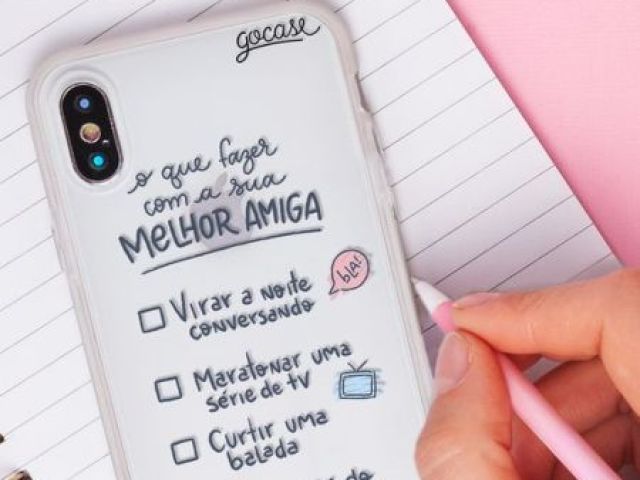 gocase
o que fazer
com a sua
MELHOR AMIGA
Virar a noite
conversando
bla!
Maratonar uma
série de tv
Curtir uma
balada